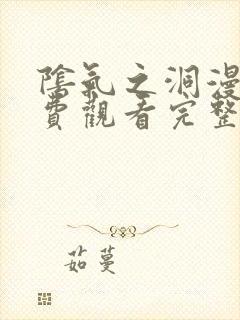 陰氣之洞漫
費觀看完整
茹蔓